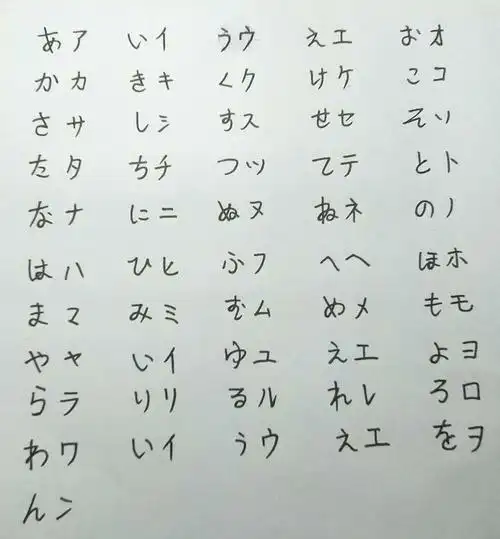 あア いイ うウ えエ おオ
かカ きキ くク けケ こコ
さサ しシ すス せセ そソ
たタ ちチ つツ てテ とト
なナ にニ ぬヌ ねネ のノ
はハ ひヒ ふフ へヘ ほホ
まマ みミ むム めメ もモ
やヤ いイ ゆユ えエ よヨ
らラ りリ るル れレ ろロ
わワ いイ うウ えエ をヲ
んン